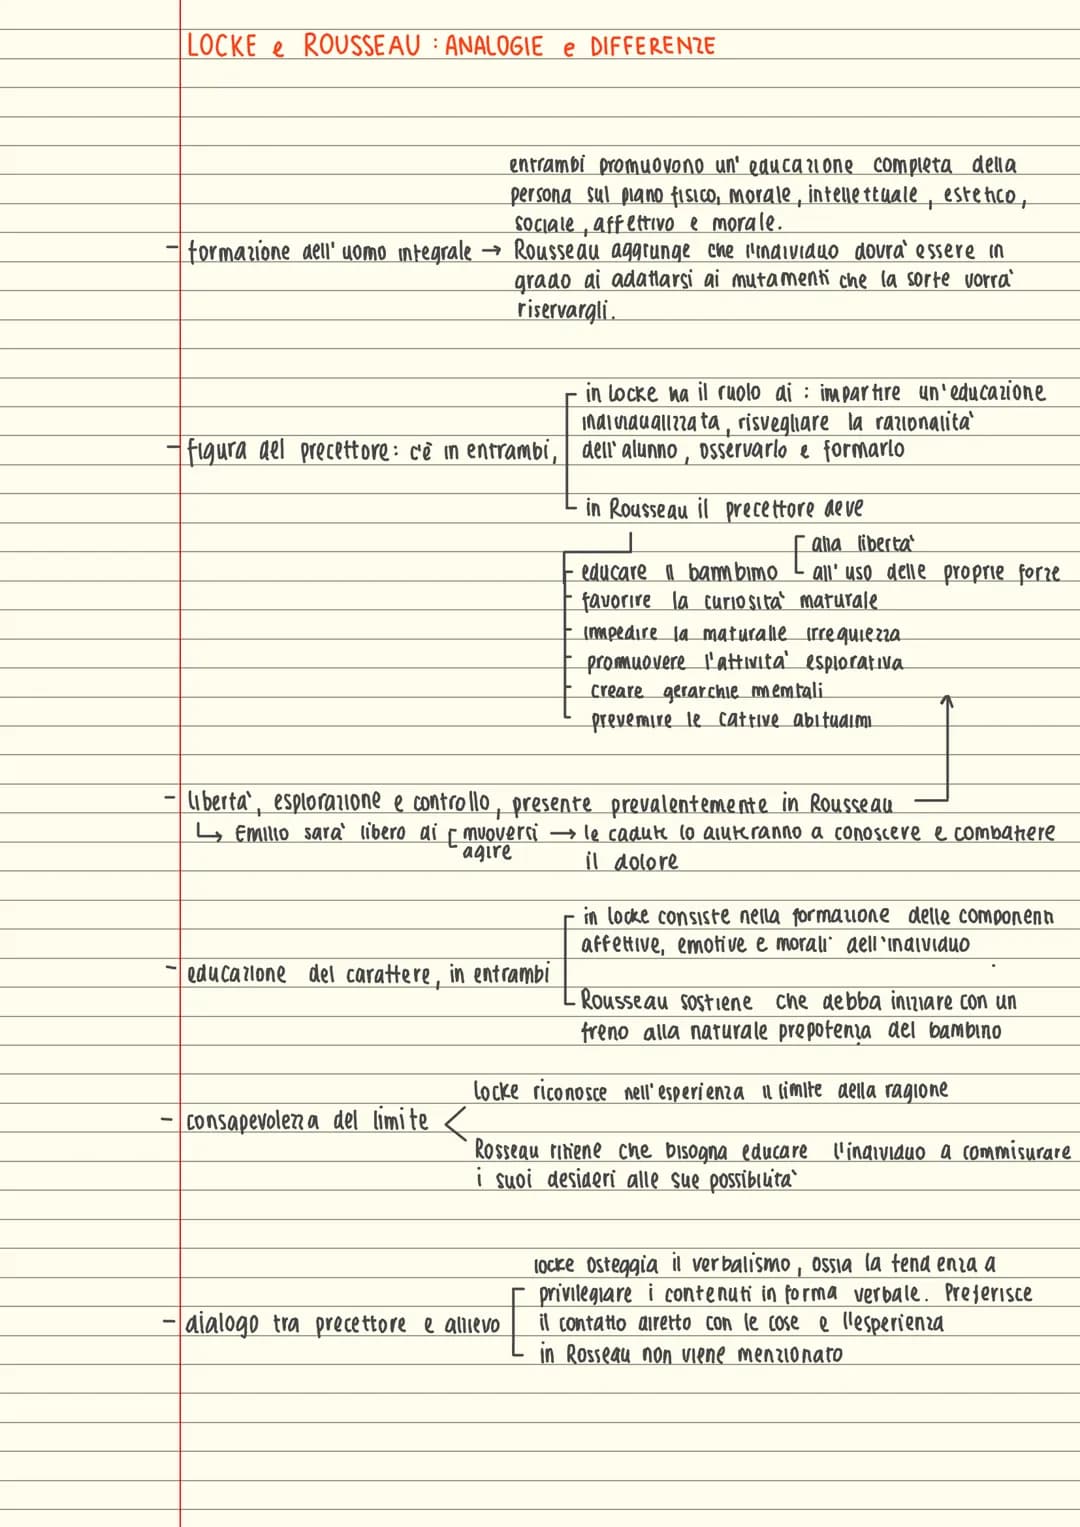 LOCKE e ROUSSEAU : ANALOGIE e DIFFERENZE
entrambi promuovono un' educazione completa della
persona sul piano fisico, morale, intellettuale, estetico,
sociale, affettivo e morale.
- formazione dell' uomo integrale → Rousseau aggiunge che l'individuo dovrà essere in
grado di adattarsi ai mutamenti che la sorte vorrà
riservargli.
in Locke ha il ruolo di : impartire un'educazione
individualizzata, risvegliare la razionalità
- figura del precettore: c'è in entrambi, dell' alunno, osservarlo e formarlo
in Rousseau il precettore deve
alla libertà
educare il bambimo all' uso delle proprie forze
favorire la curiosità maturale
impedire la maturalle irrequiezza
promuovere l'attività esplorativa
creare gerarchie memtali
prevemire le cattive abitudimi
- libertà, esplorazione e controllo, presente prevalentemente in Rousseau
↳ Emilio sarà libero di muoversi → le cadute lo aiuteranno a conoscere e combattere
agire il dolore
in locke consiste nella formazione delle componenti
affettive, emotive e morali dell'individuo
- educazione del carattere, in entrambi
Rousseau sostiene che debba iniziare con un
freno alla naturale prepotenza del bambino
locke riconosce nell'esperienza il limite della ragione
- consapevolezza del limite <
Rosseau ritiene che bisogna educare l'individuo a commisurare
i suoi desideri alle sue possibilità
locke osteggia il verbalismo, ossia la tendenza a
privilegiare i contenuti in forma verbale. Preferisce
- dialogo tra precettore e allievo il contatto diretto con le cose e l'esperienza
in Rosseau non viene menzionato